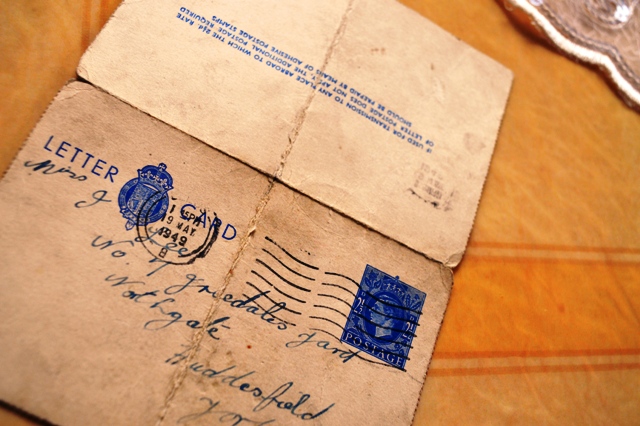 IF USED FOR TRANSMISSION TO ANY PLACE ABROAD TO WHICH THE 2½d. RATE
OF LETTER POSTAGE DOES NOT APPLY, THE ADDITIONAL POSTAGE REQUIRED
SHOULD BE PREPAID BY MEANS OF ADHESIVE POSTAGE STAMPS
LETTER CARD
PM
19 MAY
1949
8
Miss J
No Yard
Northgate
Huddesfield
2½ 2½
POSTAGE